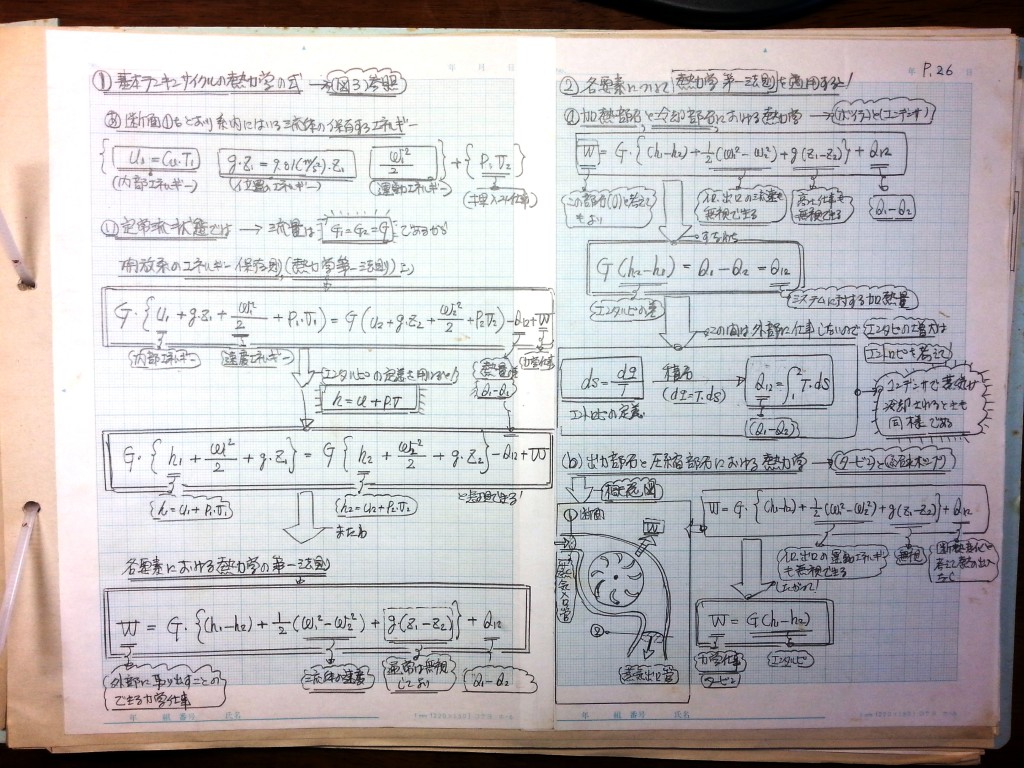 P.26
① 基本ランキュサイクルの熱力学の式 → 図3参照
(a) 断面①もとおり系内にはいる流体の保有するエネルギー
{ U₁ = Cv・T₁  g・Z₁ = 9.81(m/s²)・Z₁  ω₁²/2 } + { P₁・V₁ }
(内部エネルギー) (位置のエネルギー) (運動エネルギー)
(b) 定常流状態では → 流量は G₁ = G₂ = G であるから
開放系のエネルギー保存則(熱力学第一法則)より
G・{ U₁ + g・Z₁ + ω₁²/2 + P₁・V₁ } = G { U₂ + g・Z₂ + ω₂²/2 + P₂・V₂ } - Q₁₂ + W
内部エネルギー 速度エネルギー 熱量 Q₁-Q₂ 力学仕事
エンタルピの定義を用いると
h = u + P・V
G・{ h₁ + ω₁²/2 + g・Z₁ } = G { h₂ + ω₂²/2 + g・Z₂ } - Q₁₂ + W
h₁ = U₁ + P₁・V₁ h₂ = U₂ + P₂・V₂ と表現できる!
または
各要素における熱力学の第一法則
W = G・{ (h₁-h₂) + 1/2(ω₁²-ω₂²) + g(Z₁-Z₂) } + Q₁₂
外部に取り出すことのできる力学仕事
流体の速度
通常は無視してよい
Q₁-Q₂
② 各要素について熱力学第一法則を適用すると!
(a) 加熱部分と冷却部分における熱力学 → (ボイラ)と(コンデンサ)
W = G・{ (h₁-h₂) + 1/2(ω₁²-ω₂²) + g(Z₁-Z₂) } + Q₁₂
この部分(0)と考えてもよい
入口、出口の流速も無視できる
高さ仕事も無視できる
Q₁-Q₂
すなわち
G(h₂-h₁) = Q₁-Q₂ = Q₁₂
エンタルピの差 システムに対する加熱量
この間は外部に仕事しないので エンタルピの増大は
エントロピも考えて!
dS = dq/T 積分 (dq = T・dS) → Q₁₂ = ∫₁² T・dS
エントロピの定義 (Q₁-Q₂)
コンデンサで蒸気が冷却されるときも同様である
(b) 出力部分と圧縮部分における熱力学 → (タービン)と(給水ポンプ)
概略図
① 断面
W
蒸気入口管
②
蒸気出口管
W = G・{ (h₁-h₂) + 1/2(ω₁²-ω₂²) + g(Z₁-Z₂) } + Q₁₂
入口、出口の運動エネルギーも無視できる
無視
断熱変化と考えて熱の出入なし
したがって!
W = G(h₁-h₂)
力学仕事 エンタルピ
(タービン)
年 組 番号 氏名
年 組 番号 氏名